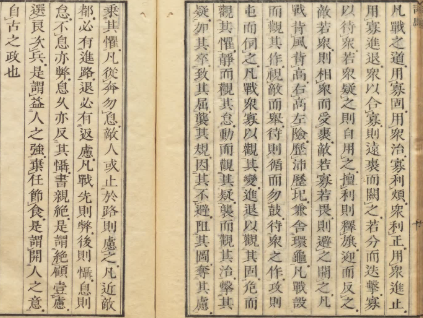 凡戰之道用寡固用衆治寡利煩衆利正用衆進止
用寡進退衆以合寡則遠裹而闕之若分而迭擊寡
以待衆若衆疑之則自用之擅利則釋旗迎而反之
敵若衆則相衆而受裹敵若寡若畏則避之開之凡
戰背風背高右高左險歷沛歷圮兼舍環龜凡戰設
而觀其作視敵而舉待則循而勿鼓待衆之作攻則
屯而伺之凡戰衆寡以觀其變進退以觀其固危而
觀其懼靜而觀其怠動而觀其疑襲而觀其治擊其
疑加其卒致其屈襲其規因其不避阻其圖奪其慮
乘其懼凡從奔勿息敵人或止於路則慮之凡近敵
都必有進路退必有返慮凡戰先則弊後則懾息則
怠不息亦弊息久亦反其懾書親絕是謂絕顧壹慮
選良次兵是謂益人之強棄任節食是謂開人之意
自古之政也